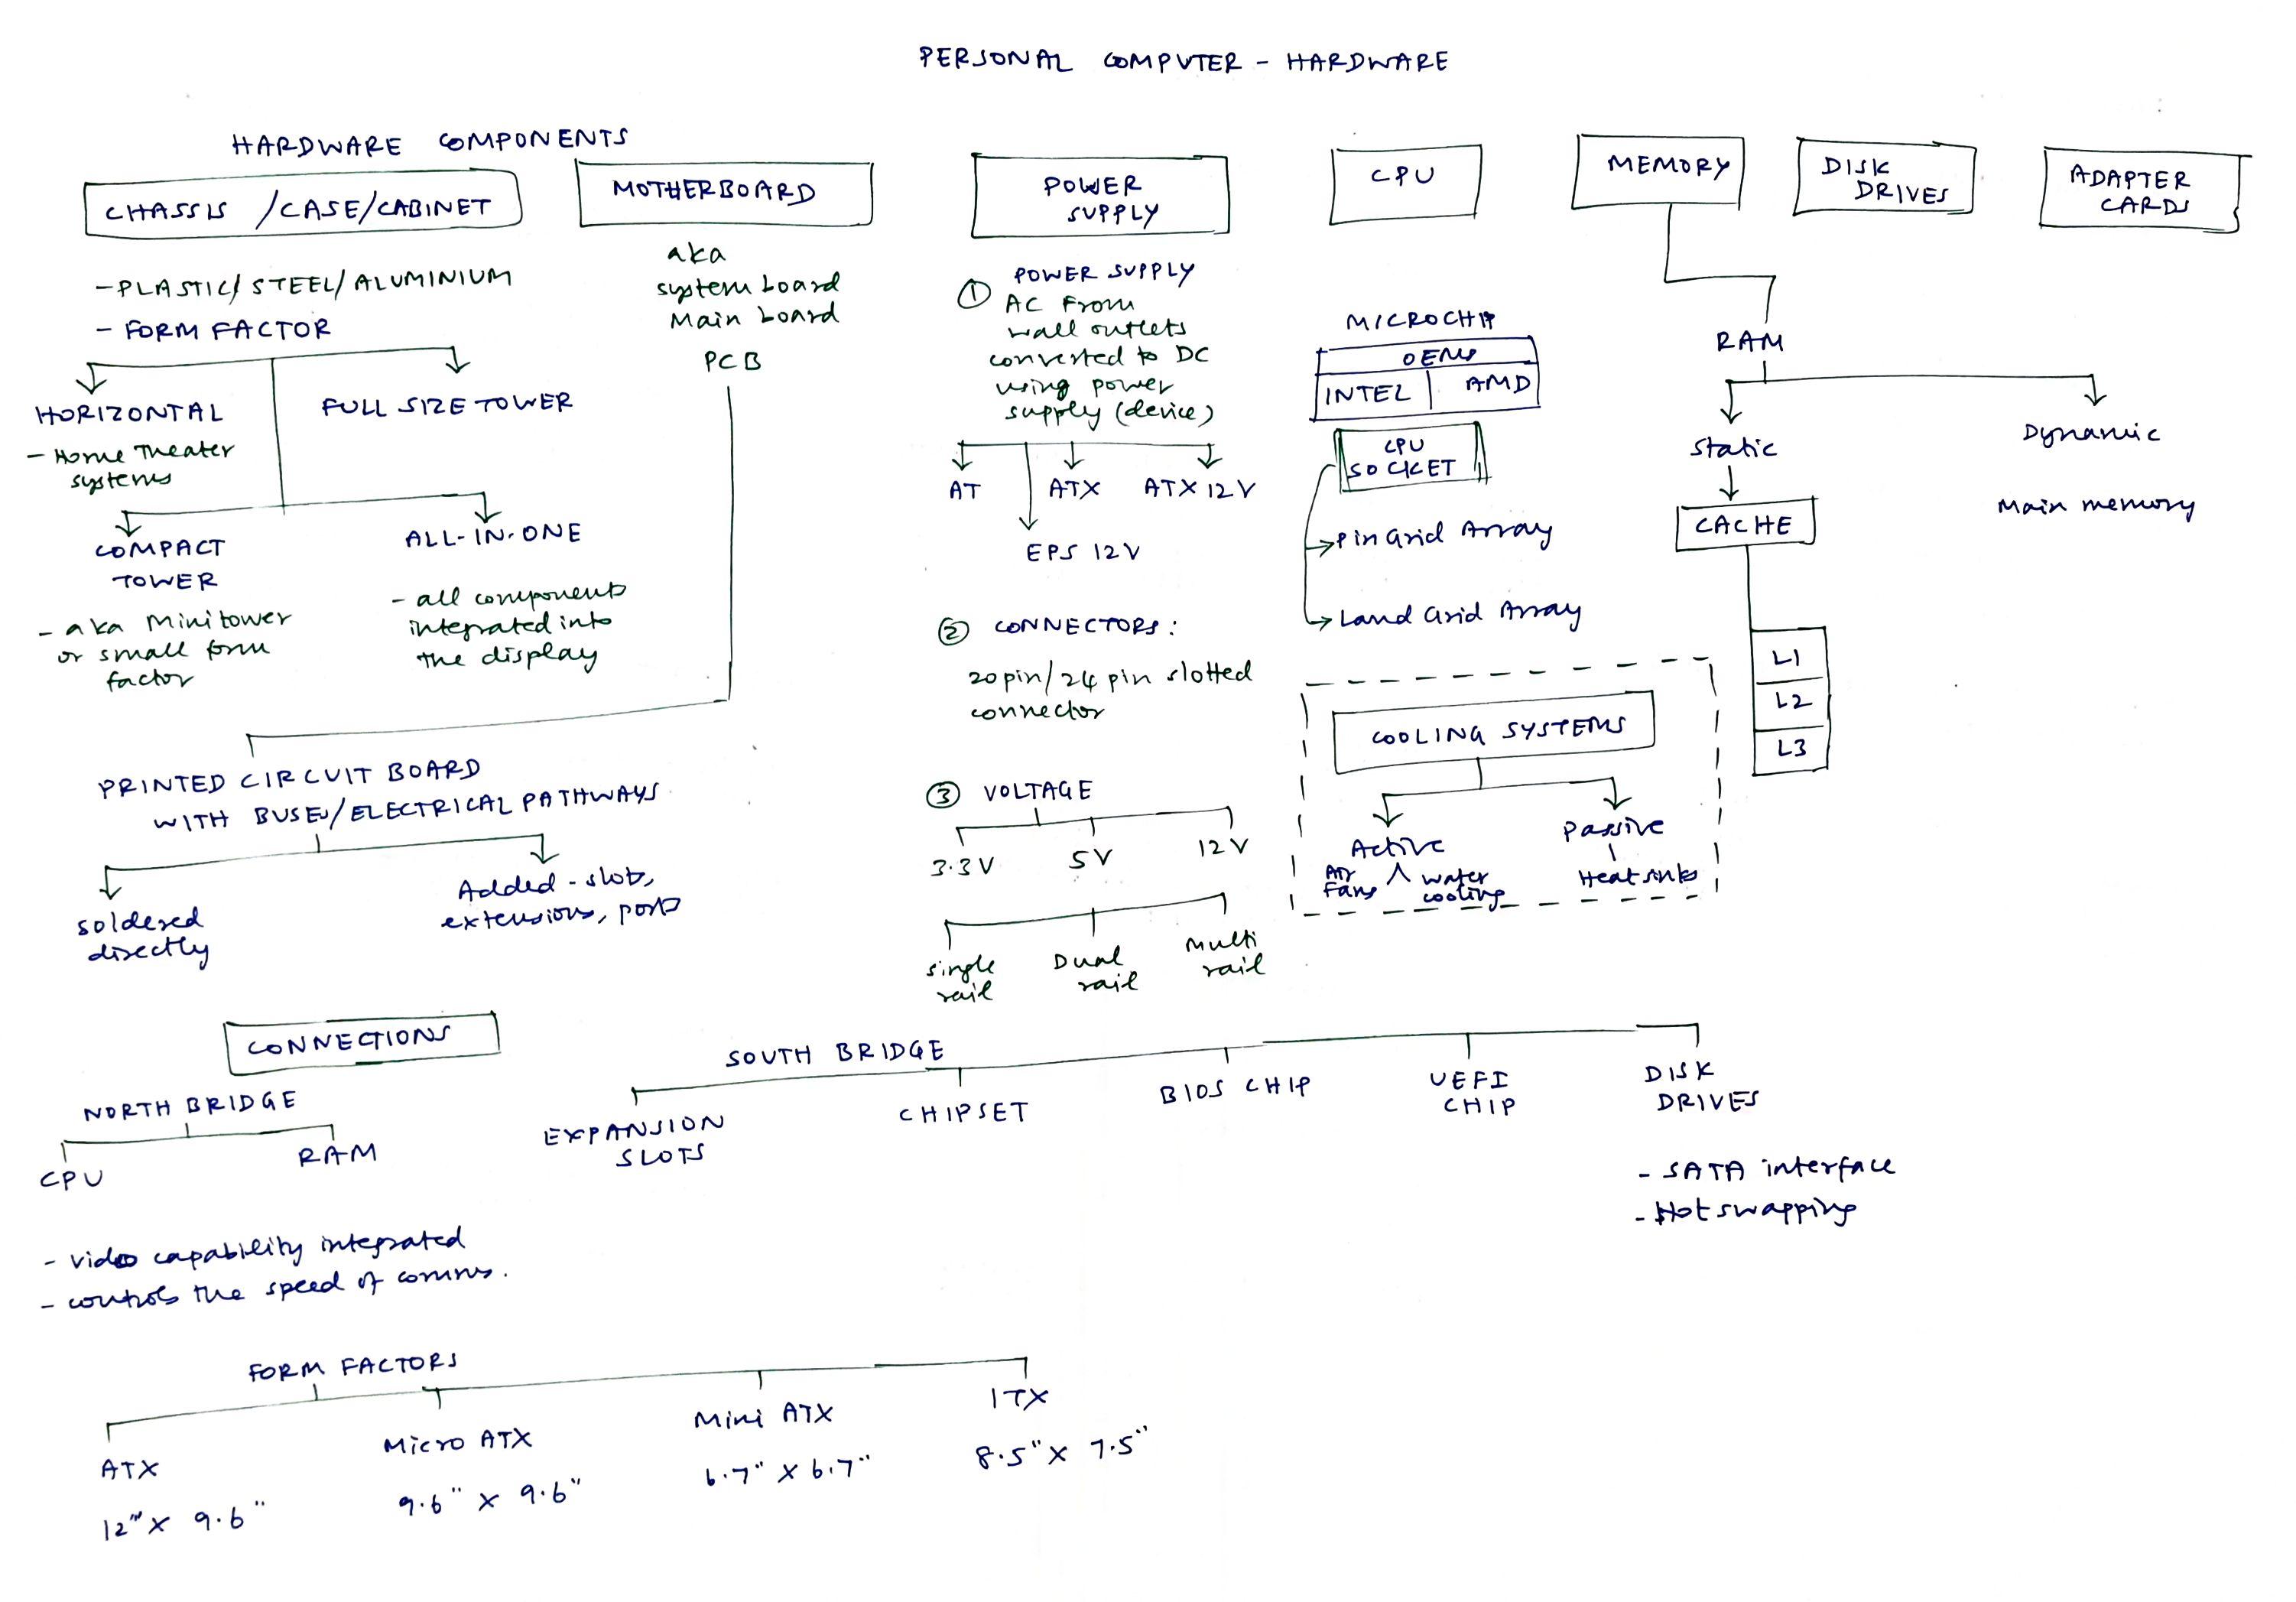 PERSONAL COMPUTER - HARDWARE
HARDWARE COMPONENTS
CHASSIS /CASE/CABINET
- PLASTIC/ STEEL/ ALUMINIUM
- FORM FACTOR
HORIZONTAL
- Home Theater
systems
FULL SIZE TOWER
COMPACT
TOWER
- aka Minitower
or small form
factor
ALL-IN-ONE
- all components
integrated into
the display
MOTHERBOARD
aka
system board
Main board
PCB
PRINTED CIRCUIT BOARD
WITH BUSES/ELECTRICAL PATHWAYS
soldered
directly
Added - slots,
extensions, ports
POWER
SUPPLY
① POWER SUPPLY
AC From
wall outlets
converted to DC
using power
supply (device)
AT
ATX
ATX 12V
EPS 12V
② CONNECTORS:
20 pin/24 pin slotted
connector
③ VOLTAGE
3.3V
5V
12V
single
rail
Dual
rail
Multi
rail
CPU
MICROCHIP
OEMs
INTEL
AMD
CPU
SOCKET
Pin Grid Array
Land Grid Array
COOLING SYSTEMS
Active
Air
Fans
water
cooling
Passive
Heat sinks
MEMORY
RAM
Static
CACHE
L1
L2
L3
Dynamic
Main memory
DISK
DRIVES
ADAPTER
CARDS
CONNECTIONS
NORTH BRIDGE
CPU
RAM
- video capability integrated
- controls the speed of comms.
SOUTH BRIDGE
EXPANSION
SLOTS
CHIPSET
BIOS CHIP
UEFI
CHIP
DISK
DRIVES
- SATA interface
- Hot swapping
FORM FACTORS
ATX
12" X 9.6"
Micro ATX
9.6" X 9.6"
Mini ATX
6.7" X 6.7"
ITX
8.5" X 7.5"